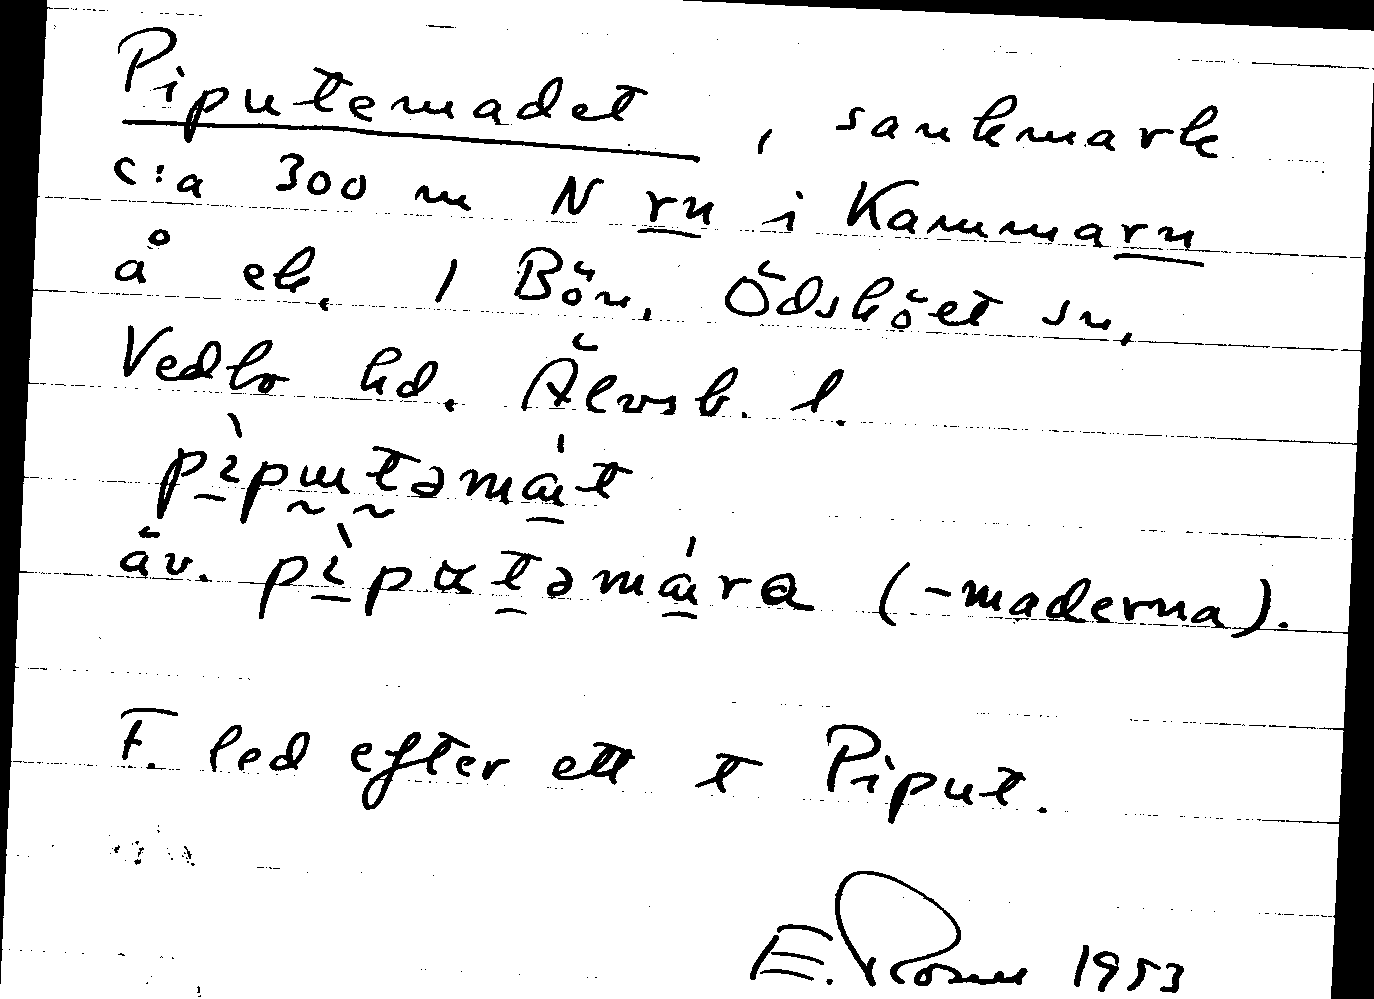 Piputemadet, sankmark
c:a 300 m N rn i Kammarn
å ek. 1 Bön, Ödsköet sn,
Vedbo hd. Älvsb. l.
äv. (-maderna).
F. led efter ett t Piput.
E. 1953